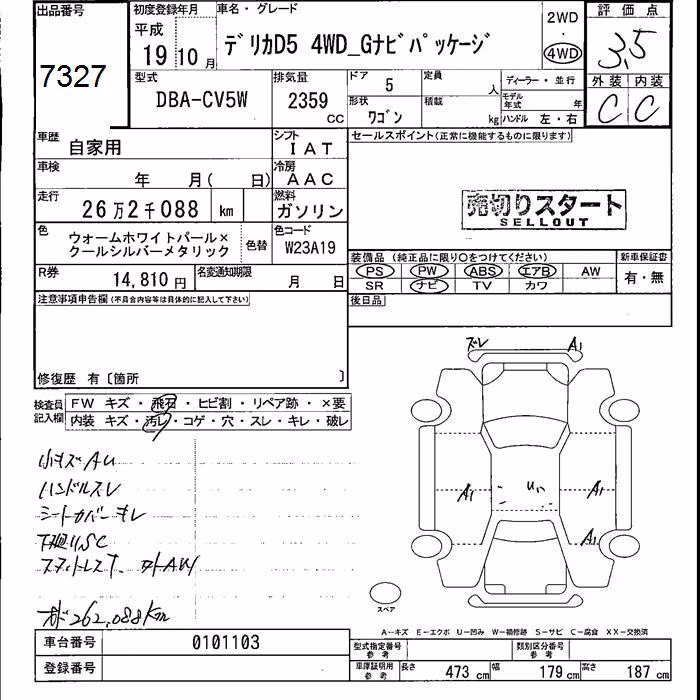 出品番号
7327
初度登録年月
平成
19 10 月
車名・グレード
デリカD5 4WD_Gナビパッケージ
2WD
・
4WD
評価点
3.5
外装 内装
C C
型式
DBA-CV5W
排気量
2359 CC
ドア 5
定員 人
形状 ワゴン
積載 kg
ディーラー・並行
モデル年式 年
ハンドル 左・右
車歴 自家用
シフト IAT
車検 年 月( 日)
冷房 AAC
走行 26万2千088 km
燃料 ガソリン
色 ウォームホワイトパール×
クールシルバーメタリック
色替
色コード W23A19
R券 14,810 円
名変通知期限 月 日
セールスポイント(正常に機能するものに限ります)
売切りスタート
SELLOUT
装備品 (純正品に限り○をつけてください)
PS PW ABS エアB AW
SR ナビ TV カワ
新車保証書
有・無
後日品
注意事項申告欄(不具合内容等は具体的に記入して下さい)
修復歴 有〔箇所 〕
検査員記入欄
FW キズ・飛石・ヒビ割・リペア跡・×要
内装 キズ・汚レ・コゲ・穴・スレ・キレ・破レ
小キズAU
ハンドルスレ
シートカバーキレ
下廻りSC
262,088Km
ズレ A1
A1 U1 A1
A1
スペア
A-キズ E-エクボ U-凹み W-補修跡 S-サビ C-腐食 XX-交換済
車台番号 0101103
登録番号
型式指定番号 参考
類別区分番号 参考
車庫証明用 参考 長さ 473 cm 幅 179 cm 高さ 187 cm